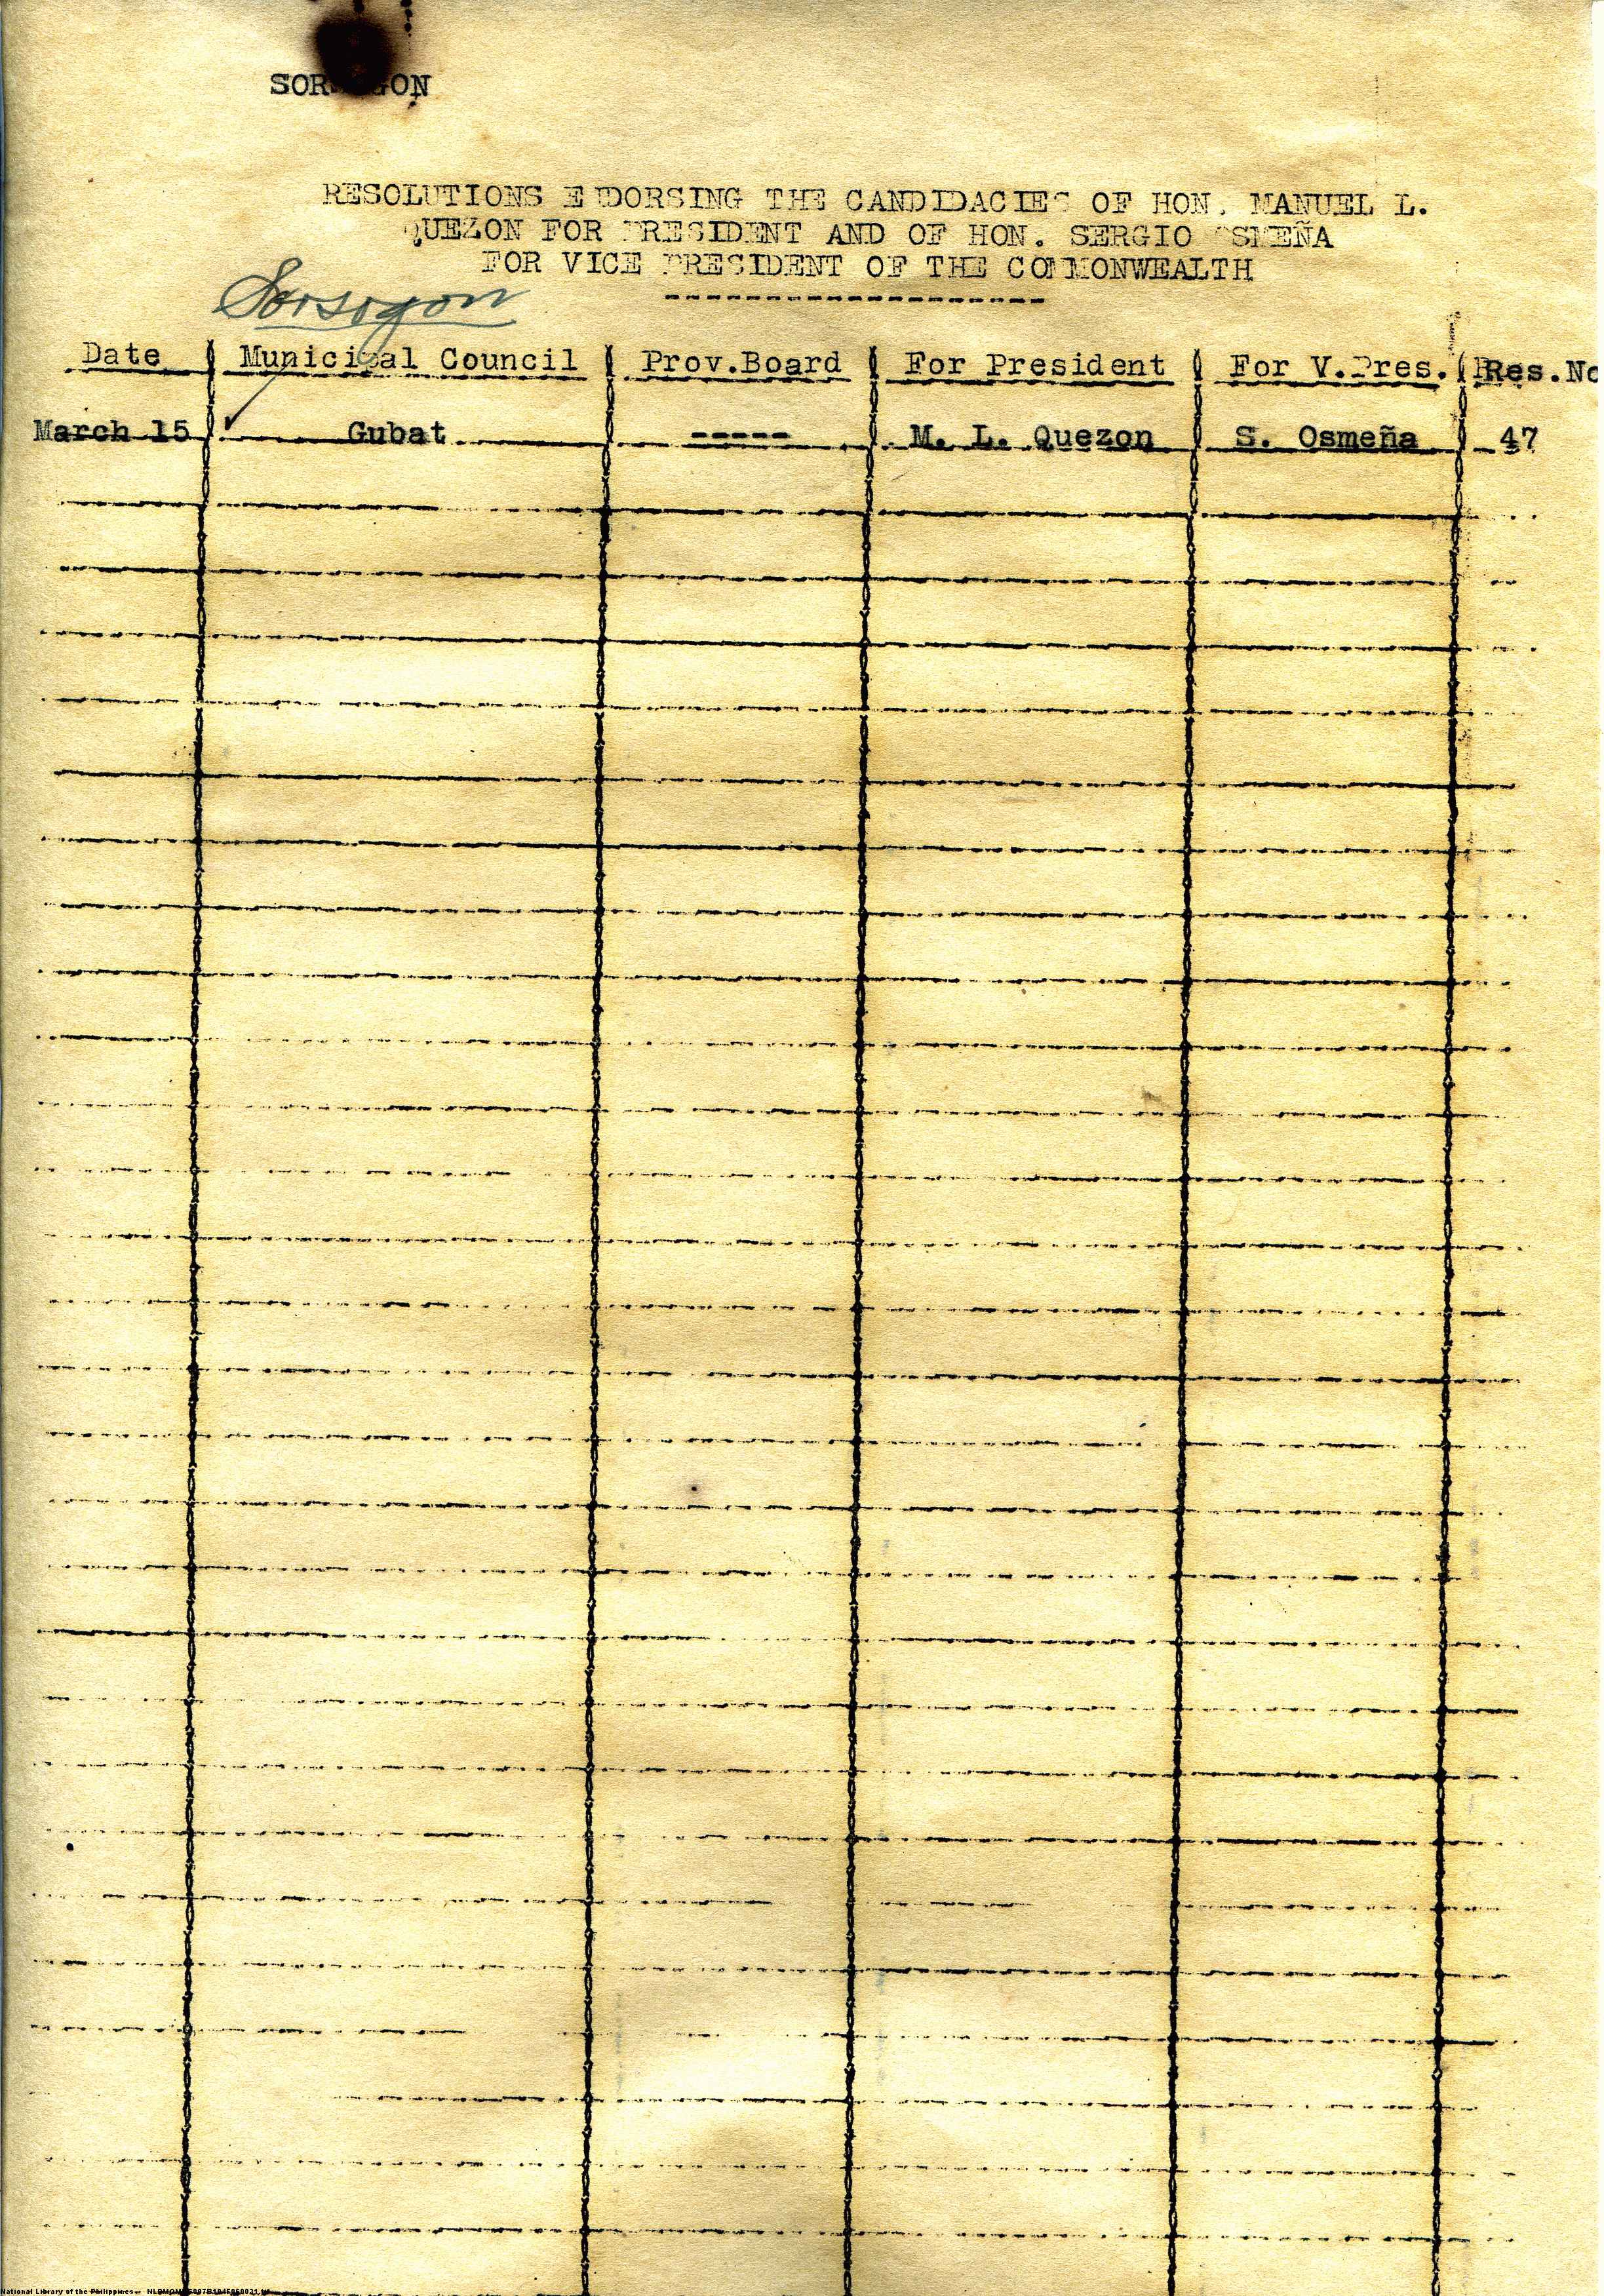 SORSOGON
RESOLUTIONS ENDORSING THE CANDIDACIES OF HON. MANUEL L.
QUEZON FOR PRESIDENT AND OF HON. SERGIO OSMEÑA
FOR VICE PRESIDENT OF THE COMMONWEALTH
Sorsogon
Date Municipal Council Prov.Board For President For V.Pres. Res.No
March 15 Gubat ----- M. L. Quezon S. Osmeña 47
National Library of the Philippines